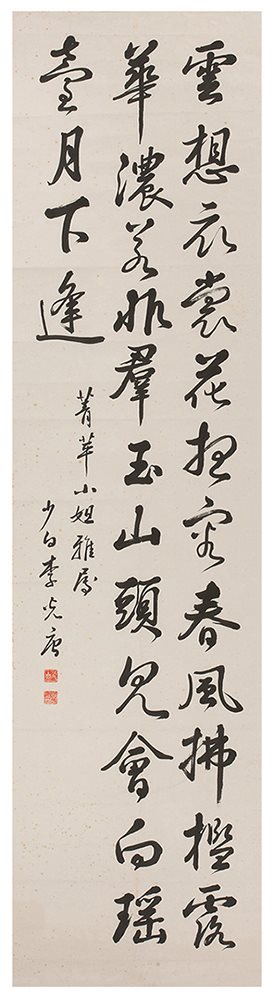 雲想衣裳花想容春風拂檻露
華濃若非羣玉山頭見會向瑶
臺月下逢
菁苹小姐雅屬
少白李光唐